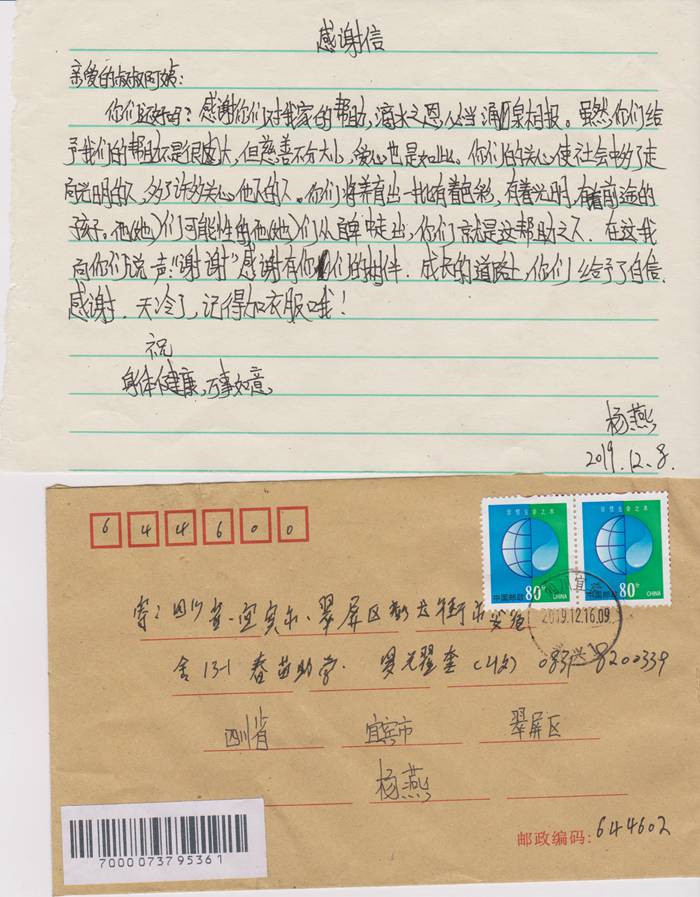 感谢信
亲爱的叔叔阿姨:
你们还好吗?感谢你们对我家的帮助,滴水之恩,必当涌泉相报。虽然你们给
予我们的帮助不是很庞大,但慈善不分大小,爱心也是如此。你们的关心使社会中多了走
向光明的人,多了许多关心他人的人。你们将养育出一批有着色彩,有着光明,有着前途的
孩子。他(她)们可能性由他(她)们从自卑中走出,你们就是这帮助之人.在这我
向你们说声:“谢谢”感谢有你们的相伴.成长的道路上,你们给予了自信.
感谢.天冷了,记得加衣服哦!
祝
身体健康,万事如意
杨燕
2019.12.8.
6 4 4 6 0 0
珍惜生命之水 珍惜生命之水
中国邮政 80分 CHINA 中国邮政 80分 CHINA
2019.12.16.09
寄:四川省.宜宾市.翠屏区
舍13-1 春苗助学. 8200339
四川省 宜宾市 翠屏区
杨燕
邮政编码:644602
7000073795361